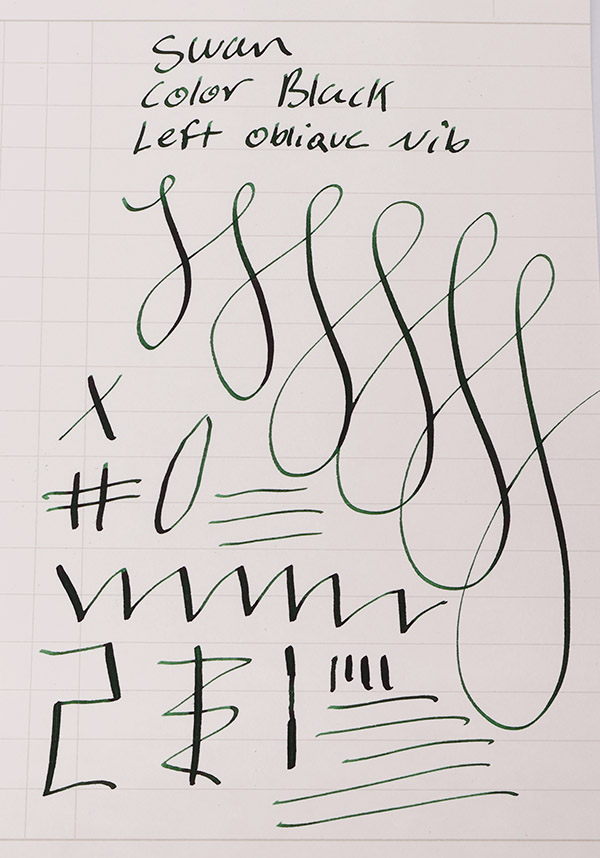 Swan
Color Black
Left oblique nib